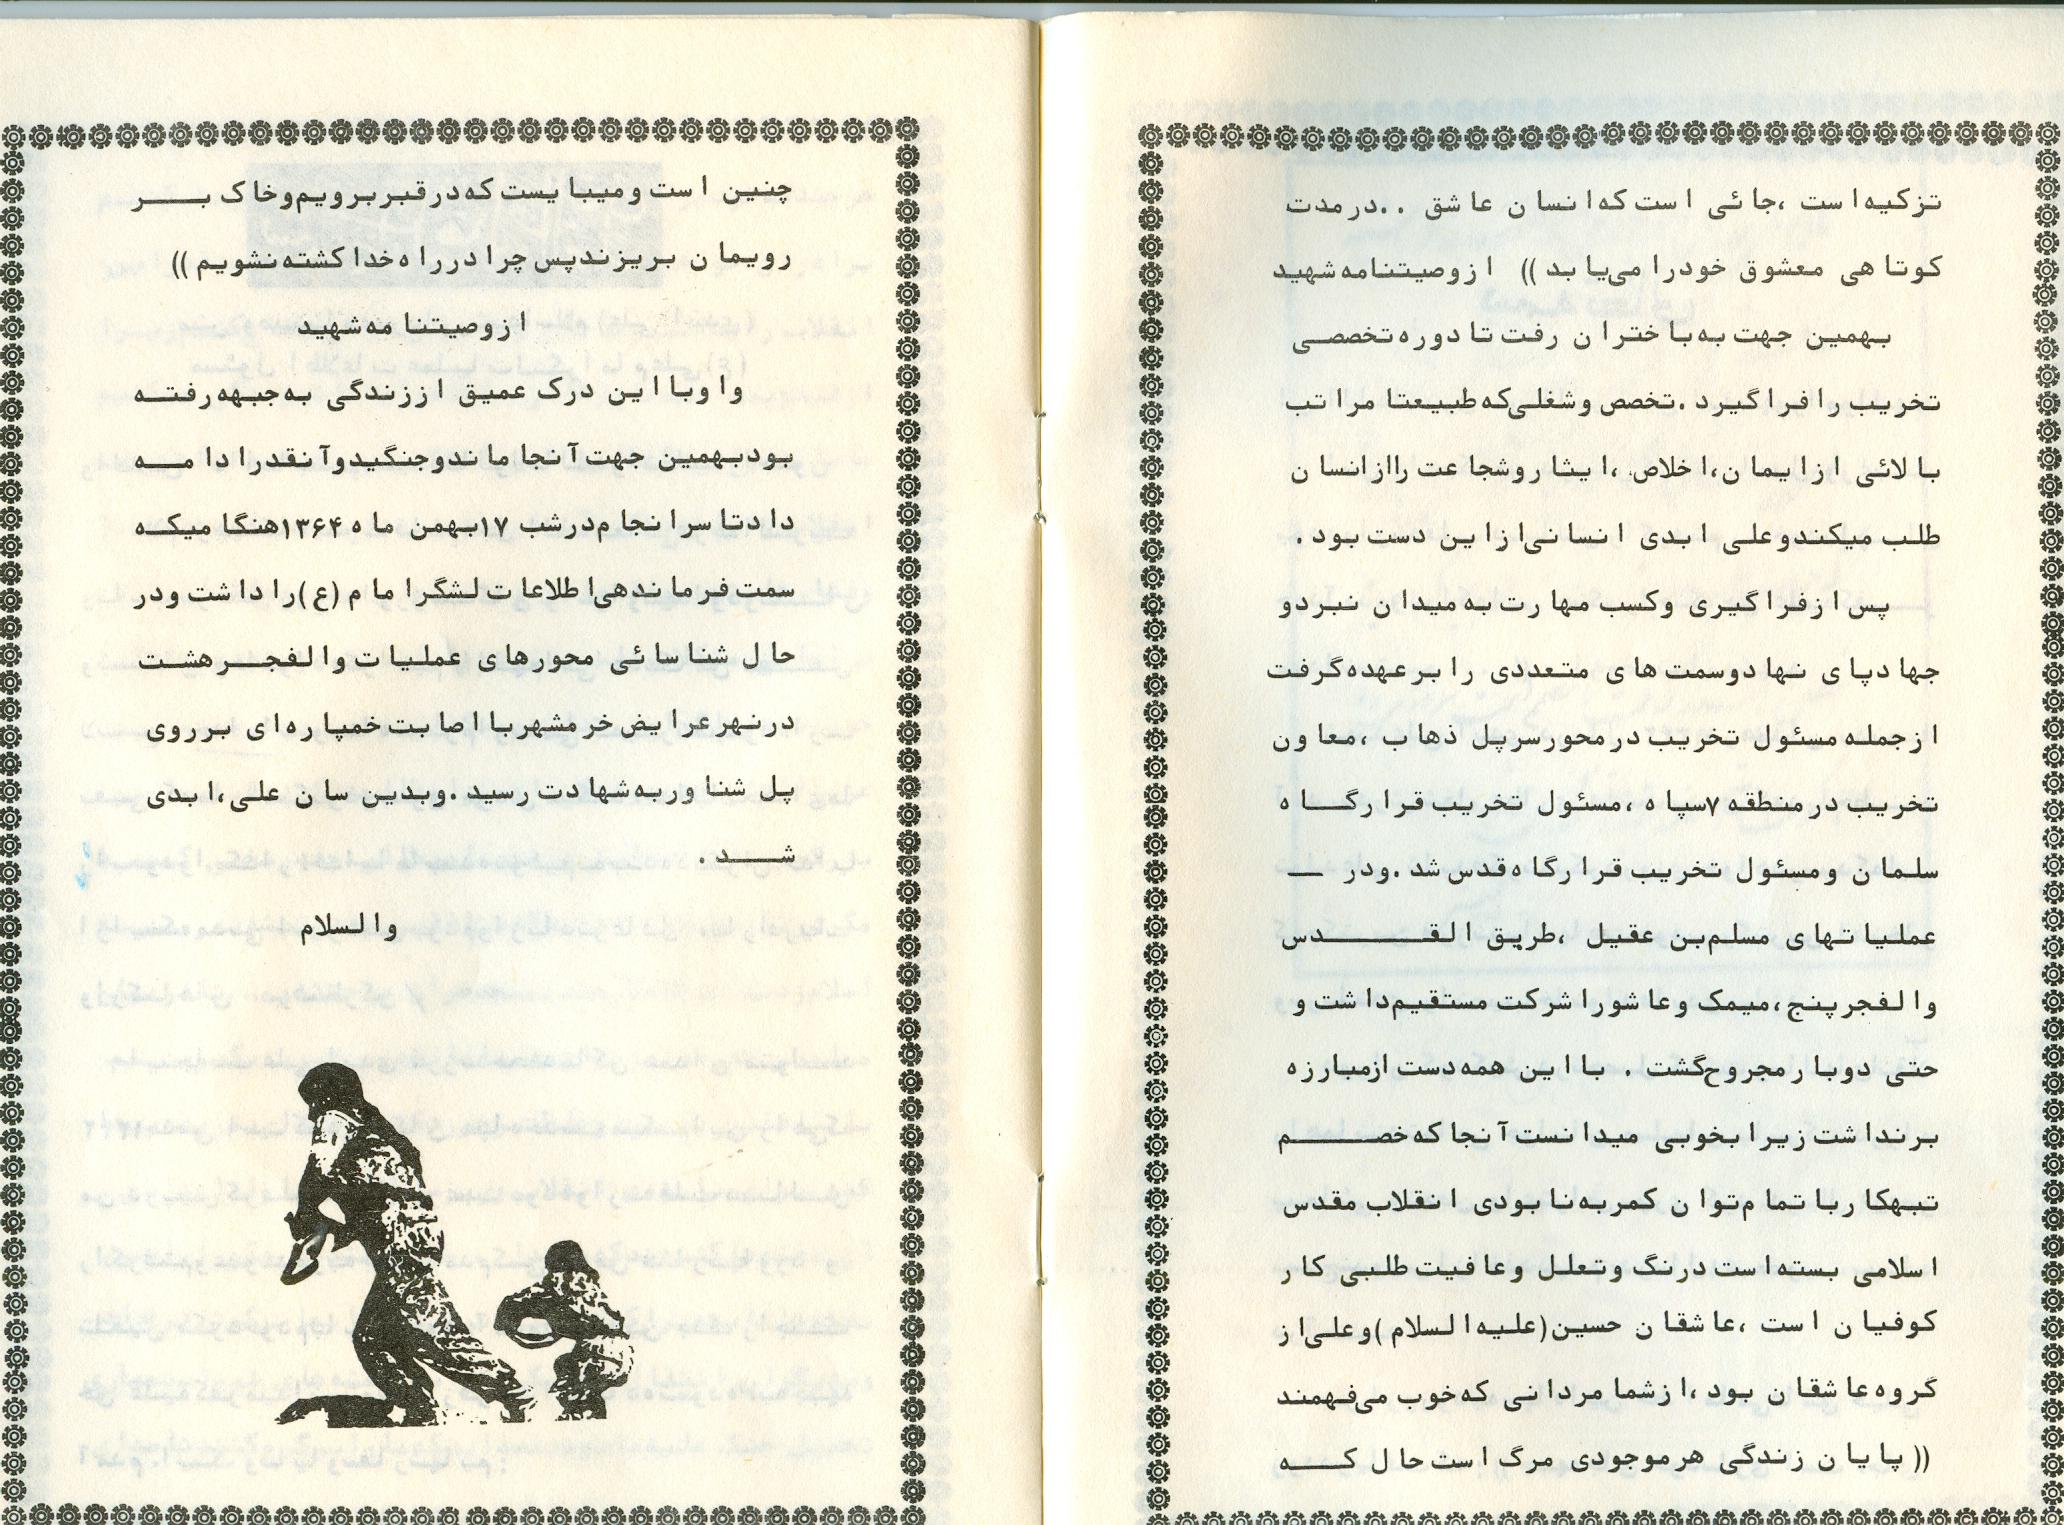 تزکیه است ،جائی است که انسان عاشق ..درمدت
کوتاهی معشوق خودرا می‌یابد )) ازوصیتنامه شهید
بهمین جهت به باختران رفت تا دوره تخصصی
تخریب را فراگیرد .تخصص وشغلی‌که طبیعتا مراتب
بالائی ازایمان،اخلاص ،ایثاروشجاعت راازانسان
طلب میکندوعلی ابدی انسانی‌ازاین دست بود .
پس ازفراگیری وکسب مهارت به میدان نبردو
جهادپای نهادوسمت های متعددی را برعهده گرفت
ازجمله مسئول تخریب درمحورسرپل ذهاب ،معاون
تخریب درمنطقه ۷سپاه ،مسئول تخریب قرارگاه
سلمان ومسئول تخریب قرارگاه قدس شد .ودر ــ
عملیاتهای مسلم‌بن عقیل ،طریق القـــــدس
والفجرپنج،میمک وعاشوراشرکت مستقیم‌داشت و
حتی دوبارمجروح‌گشت . بااین همه دست ازمبارزه
برنداشت زیرا بخوبی میدانست آنجا که خصـــم
تبهکارباتمام‌توان کمربه نابودی انقلاب مقدس
اسلامی بسته است درنگ وتعلل وعافیت طلبی کار
کوفیان است ،عاشقان حسین(علیه السلام )وعلی‌از
گروه عاشقان بود ،ازشما مردانی که خوب می‌فهمند
(( پایان زندگی هرموجودی مرگ است حال کـــه
چنین است ومیبایست که درقبربرویم‌وخاک بـــر
رویمان بریزندپس چرادرراه خداکشته نشویم ))
ازوصیتنامه شهید
واوبااین درک عمیق اززندگی به جبهه رفتــه
بودبهمین جهت آنجا ماندوجنگیدوآنقدرادامــه
دادتا سرانجام‌درشب ۱۷بهمن ماه ۱۳۶۴هنگامیکــه
سمت فرماندهی‌اطلاعات لشگرامام (ع)راداشت ودر
حال شناسائی محورهای عملیات والفجـــرهشت
درنهرعرایض خرمشهربااصابت خمپاره ای برروی
پل شناوربه شهادت رسید .وبدین سان علی،ابدی
شـــد .
والسلام